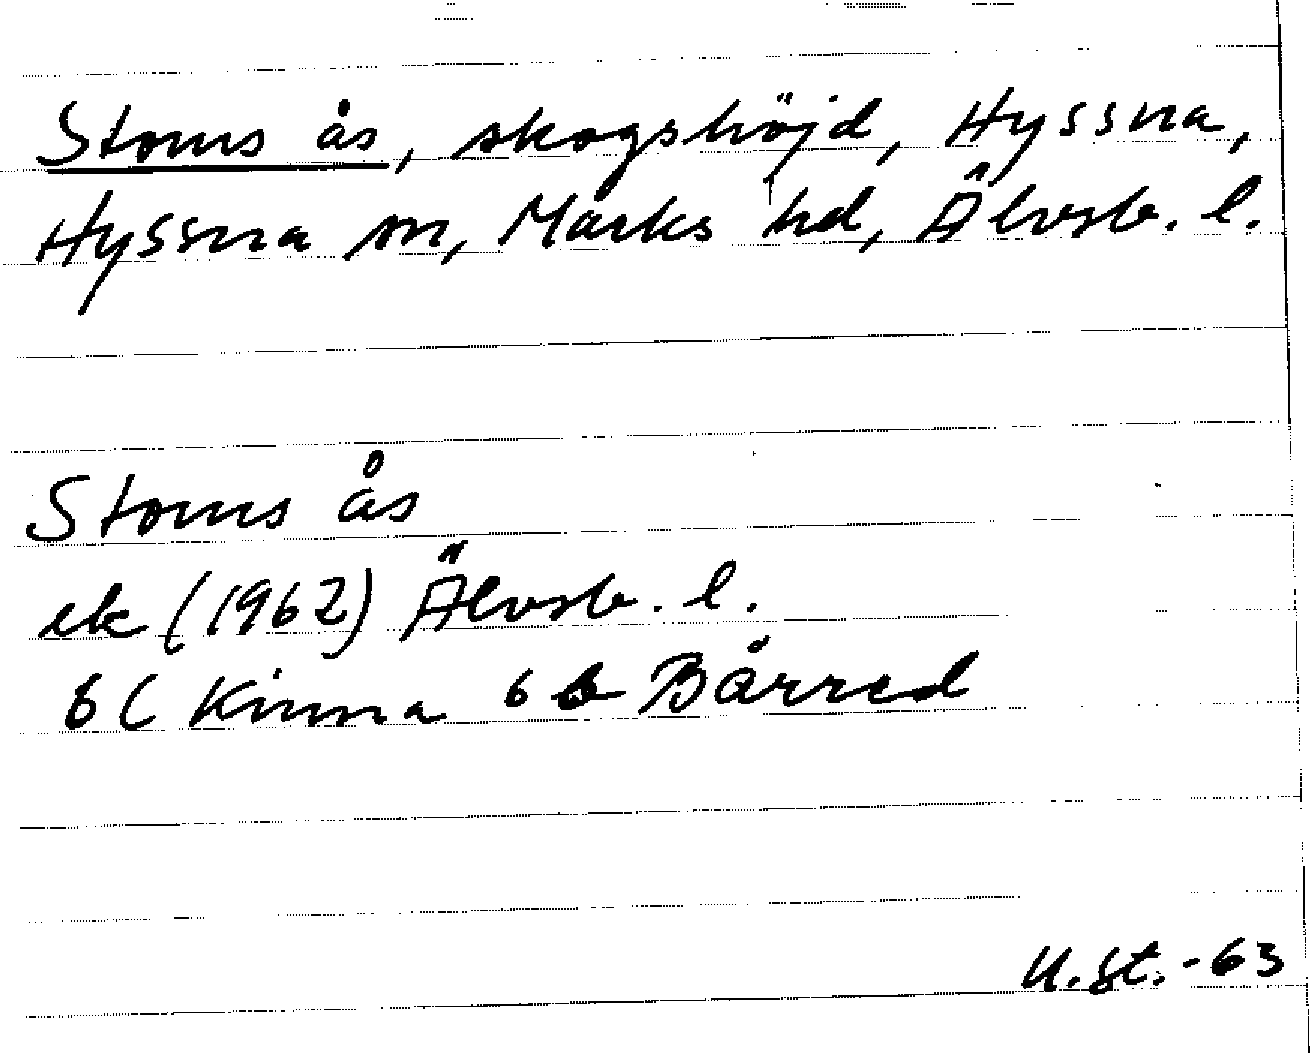 Stoms ås, skogshöjd, Hyssna,
Hyssna sn, Marks hd, Älvsb. l.
Stoms ås
ek (1962) Älvsb. l.
6C Kinna 6 b Bårred
U.St.-63